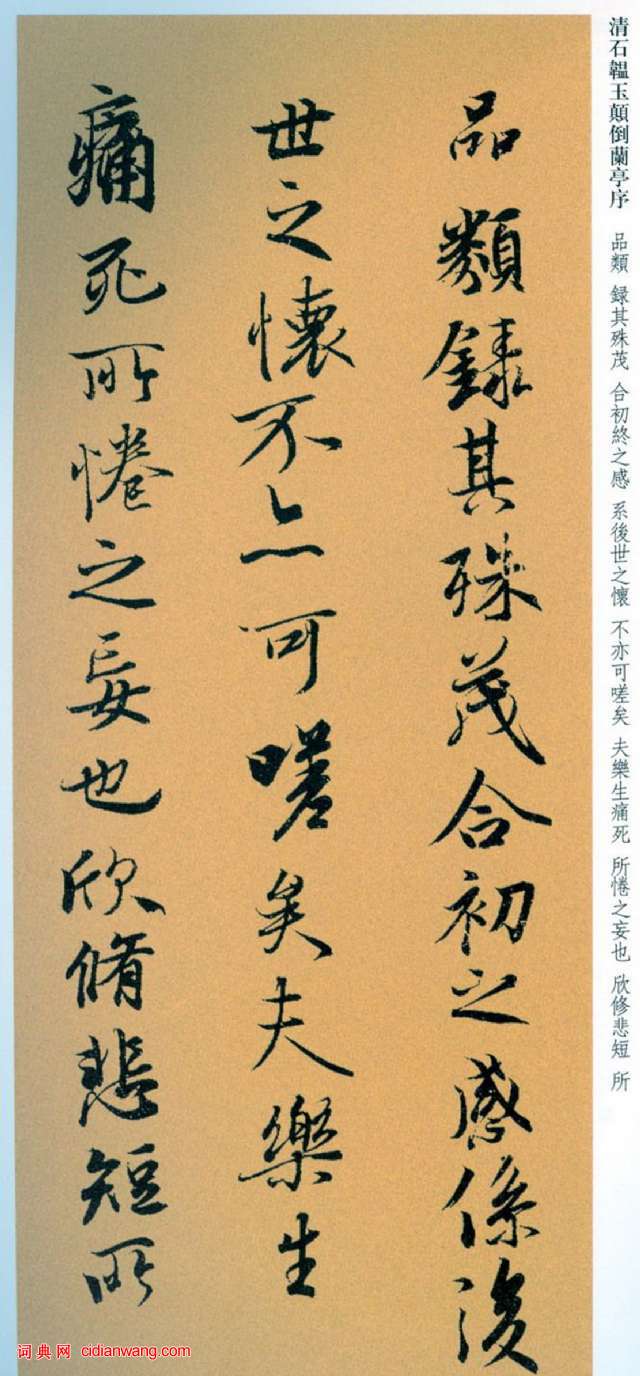 清石韞玉顛倒蘭亭序 品類 録其殊茂 合初終之感 系後世之懷 不亦可嗟矣 夫樂生痛死 所惓之妄也 欣修悲短 所
品類録其殊茂合初之感係後
世之懷不亦可嗟矣夫樂生
痛死所惓之妄也欣脩悲短所
词典网 cidianwang.com